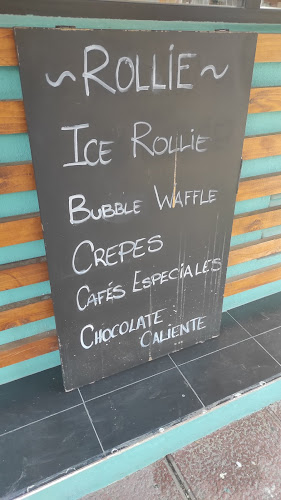 ~ROLLIE~
ICE ROLLIE
BUBBLE WAFFLE
CREPES
CAFÉS ESPECIALES
CHOCOLATE
CALIENTE